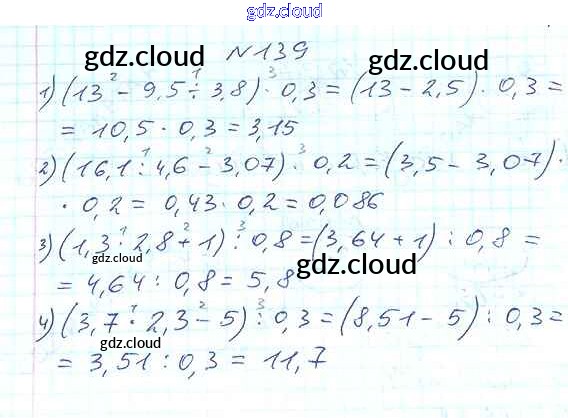 gdz.cloud
gdz.cloud № 139 gdz.cloud
1) (13 ² - 9,5 ¹ : 3,8) ³ · 0,3 = (13 - 2,5) · 0,3 =
= 10,5 · 0,3 = 3,15
gdz.cloud
2) (16,1 ¹ : 4,6 ² - 3,07) ³ · 0,2 = (3,5 - 3,07) ·
· 0,2 = 0,43 · 0,2 = 0,086
3) (1,3 ¹ · 2,8 ² + 1) ³ : 0,8 = (3,64 + 1) : 0,8 =
gdz.cloud
= 4,64 : 0,8 = 5,8
gdz.cloud
4) (3,7 ¹ · 2,3 ² - 5) ³ : 0,3 = (8,51 - 5) : 0,3 =
gdz.cloud
= 3,51 : 0,3 = 11,7